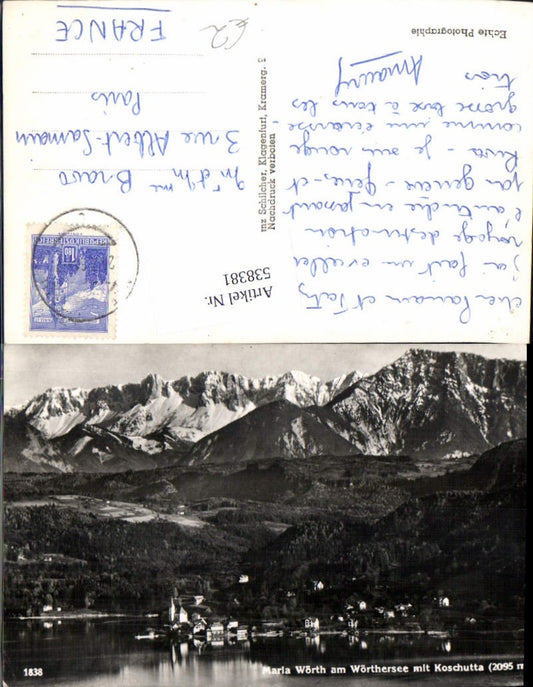 Cher Parrain et Taty
j'ai fait un excellent
voyage destination
l'autriche en passant
par geneve -
Riva - je suis rouge
comme une écrevisse -
grosse bise à tous les
trois
Amaury
Echte Photographie
Schilcher, Klagenfurt, Kramerg. 2
Nachdruck verboten
REPUBLIK ÖSTERREICH
Mr et Mme Bravo
3 rue Albert-Samain
Paris
FRANCE
£2
Artikel Nr.
538381
1838
Maria Wörth am Wörthersee mit Koschutta (2095 m